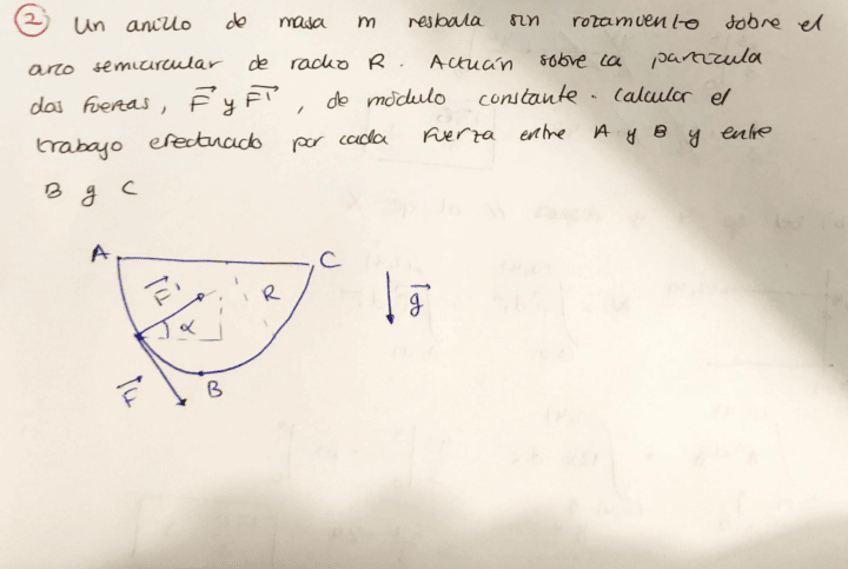 2 Un anillo de masa m resbala sin rozamiento sobre el
arco semicircular de radio R. Actuán sobre la partícula
dos fuerzas, F⃗ y F⃗', de módulo constante. Calcular el
trabajo efectuado por cada fuerza entre A y B y entre
B y C
A
C
F⃗'
R
g⃗
α
F⃗
B